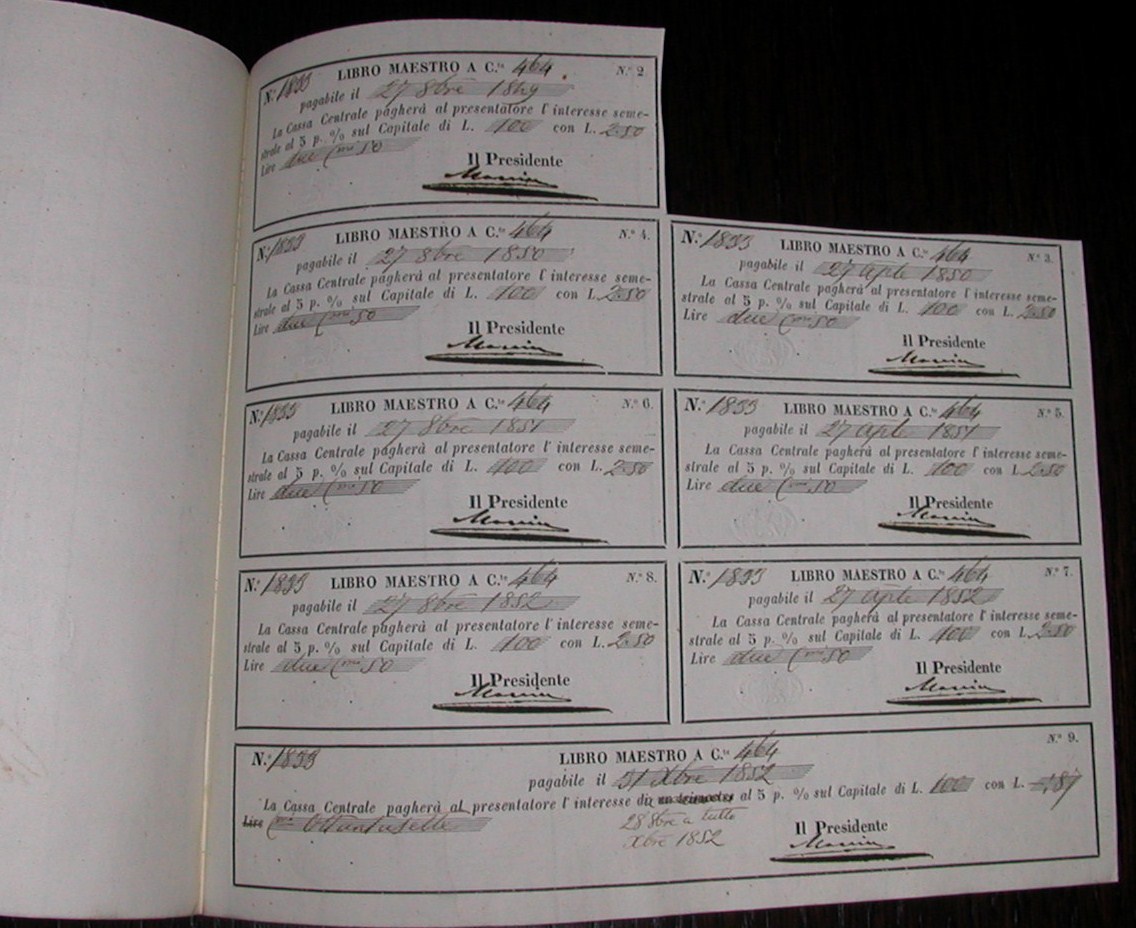 N.º 1833 LIBRO MAESTRO A C.te 464. N.º 2.
pagabile il 27 8bre 1849
La Cassa Centrale pagherà al presentatore l'interesse seme-
strale al 5 p. % sul Capitale di L. 100 con L. 2.50
Lire due Cmi 50
Il Presidente
N.º 1833 LIBRO MAESTRO A C.te 464 N.º 4.
pagabile il 27 8bre 1850
La Cassa Centrale pagherà al presentatore l'interesse seme-
strale al 5 p. % sul Capitale di L. 100 con L. 2.50
Lire due Cmi 50
Il Presidente
N.º 1833 LIBRO MAESTRO A C.te 464 N.º 3.
pagabile il 27 aple 1850
La Cassa Centrale pagherà al presentatore l'interesse seme-
strale al 5 p. % sul Capitale di L. 100 con L. 2.50
Lire due Cmi 50
Il Presidente
N.º 1833 LIBRO MAESTRO A C.te 464 N.º 6.
pagabile il 27 8bre 1851
La Cassa Centrale pagherà al presentatore l'interesse seme-
strale al 5 p. % sul Capitale di L. 100 con L. 2.50
Lire due Cmi 50
Il Presidente
N.º 1833 LIBRO MAESTRO A C.te 464 N.º 5.
pagabile il 27 aple 1851
La Cassa Centrale pagherà al presentatore l'interesse seme-
strale al 5 p. % sul Capitale di L. 100 con L. 2.50
Lire due Cmi 50
Il Presidente
N.º 1833 LIBRO MAESTRO A C.te 464 N.º 8.
pagabile il 27 8bre 1852
La Cassa Centrale pagherà al presentatore l'interesse seme-
strale al 5 p. % sul Capitale di L. 100 con L. 2.50
Lire due Cmi 50
Il Presidente
N.º 1833 LIBRO MAESTRO A C.te 464 N.º 7.
pagabile il 27 aple 1852
La Cassa Centrale pagherà al presentatore l'interesse seme-
strale al 5 p. % sul Capitale di L. 100 con L. 2.50
Lire due Cmi 50
Il Presidente
N.º 1833 LIBRO MAESTRO A C.te 464 N.º 9.
pagabile il 31 Xbre 1852
La Cassa Centrale pagherà al presentatore l'interesse di un trimestre al 5 p. % sul Capitale di L. 100 con L. -.87
Lire Cmi Ottantasette
28 8bre a tutto
Xbre 1852
Il Presidente